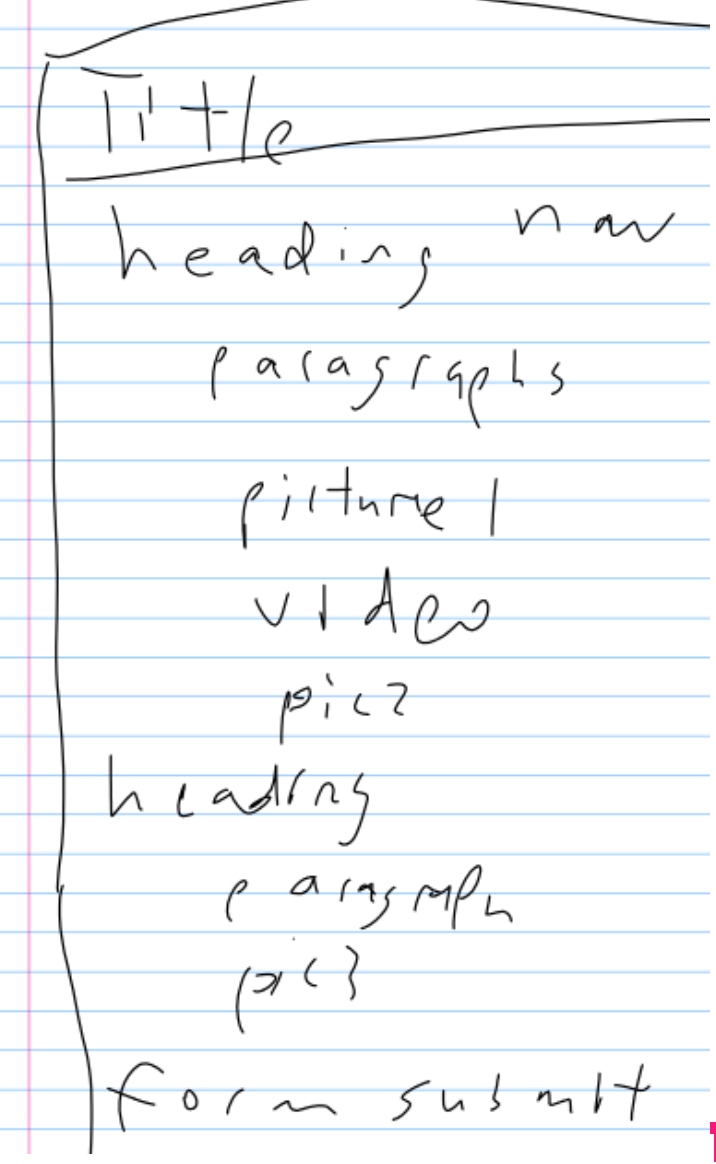 Title
heading nav
paragraphs
picture 1
video
pic2
heading
paragraph
pic3
form submit